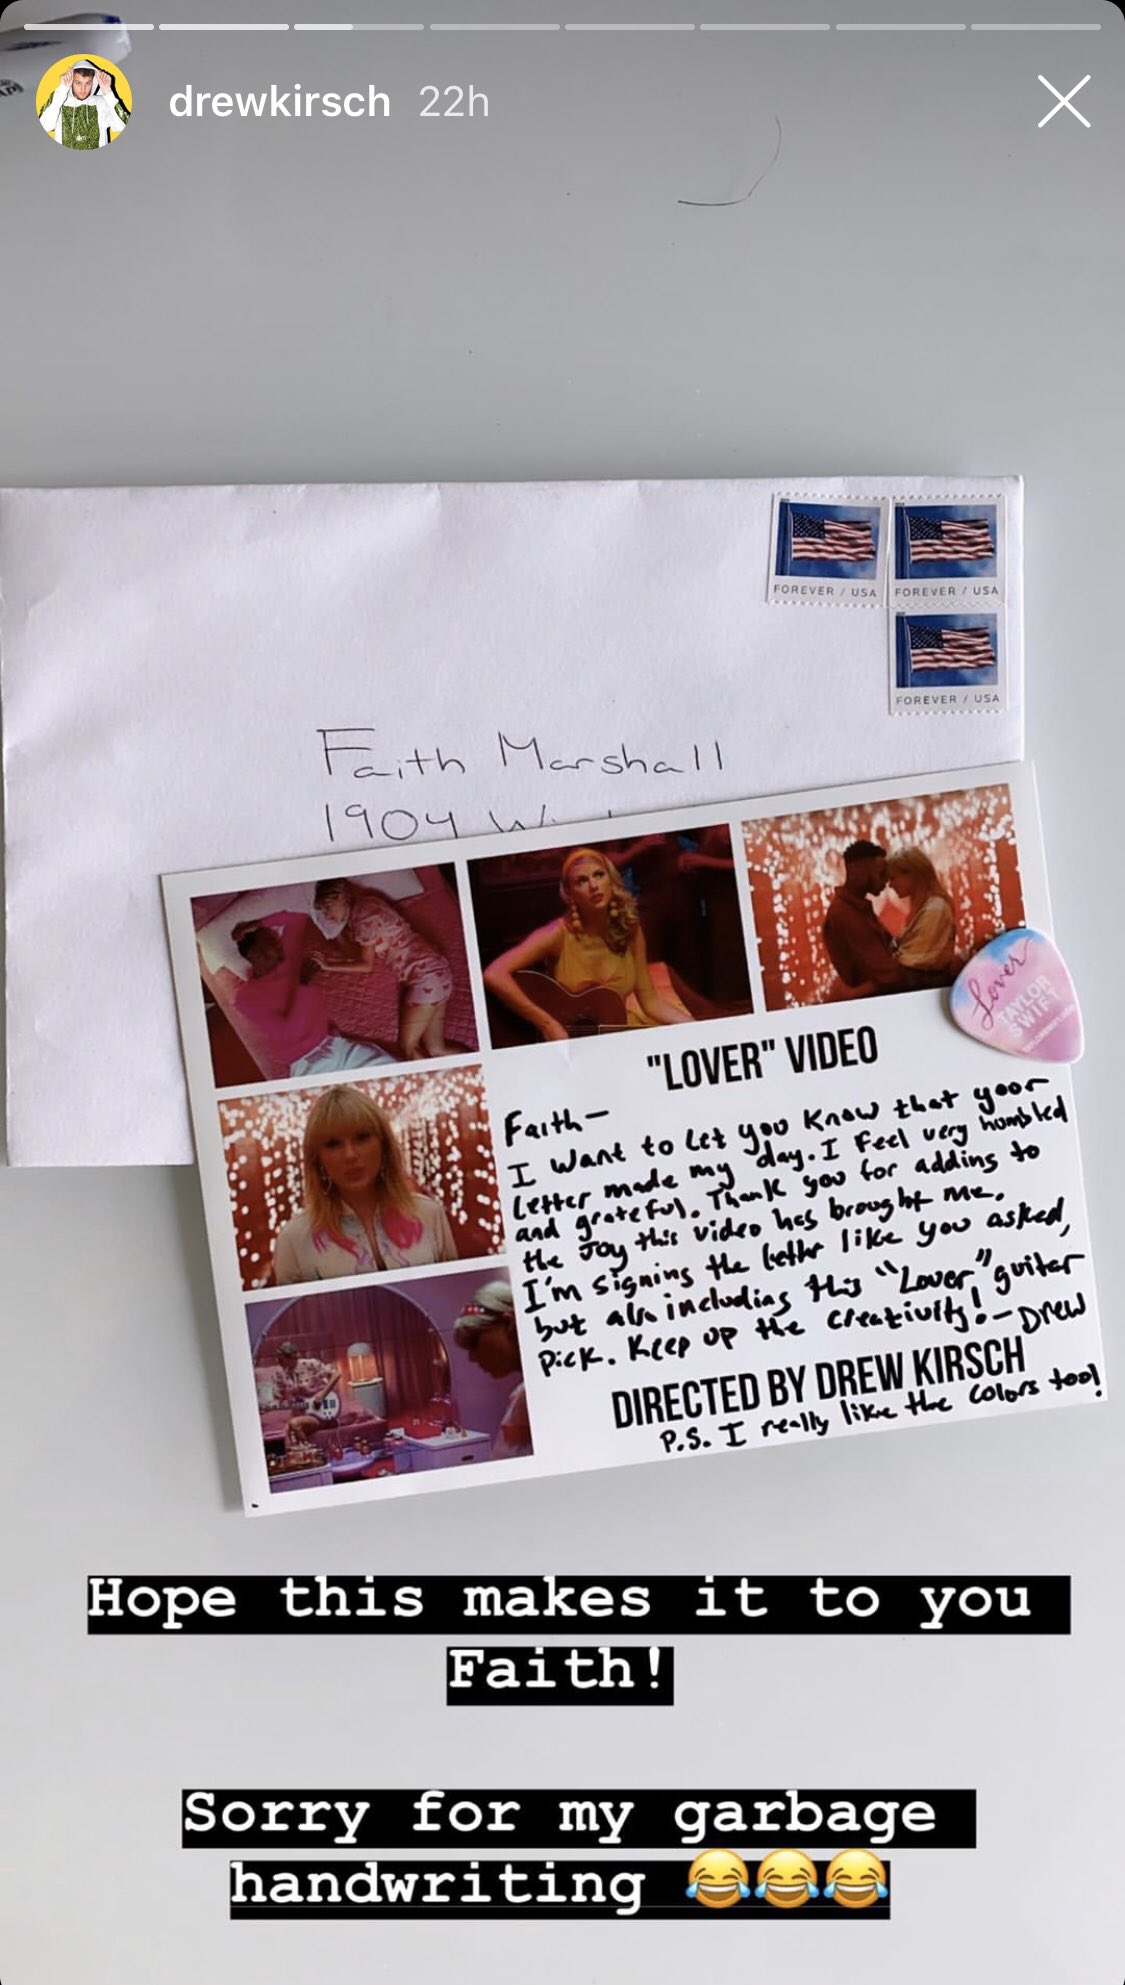 drewkirsch 22h
FOREVER / USA FOREVER / USA
FOREVER / USA
Faith Marshall
1904
Lover
TAYLOR
SWIFT
"LOVER" VIDEO
Faith-
I want to let you know that your
letter made my day. I feel very humbled
and grateful. Thank you for adding to
the joy this video has brought me.
I'm signing the letter like you asked,
but also including this "Lover" guitar
pick. Keep up the creativity! - Drew
DIRECTED BY DREW KIRSCH
P.S. I really like the colors too!
Hope this makes it to you
Faith!
Sorry for my garbage
handwriting 😂😂😂